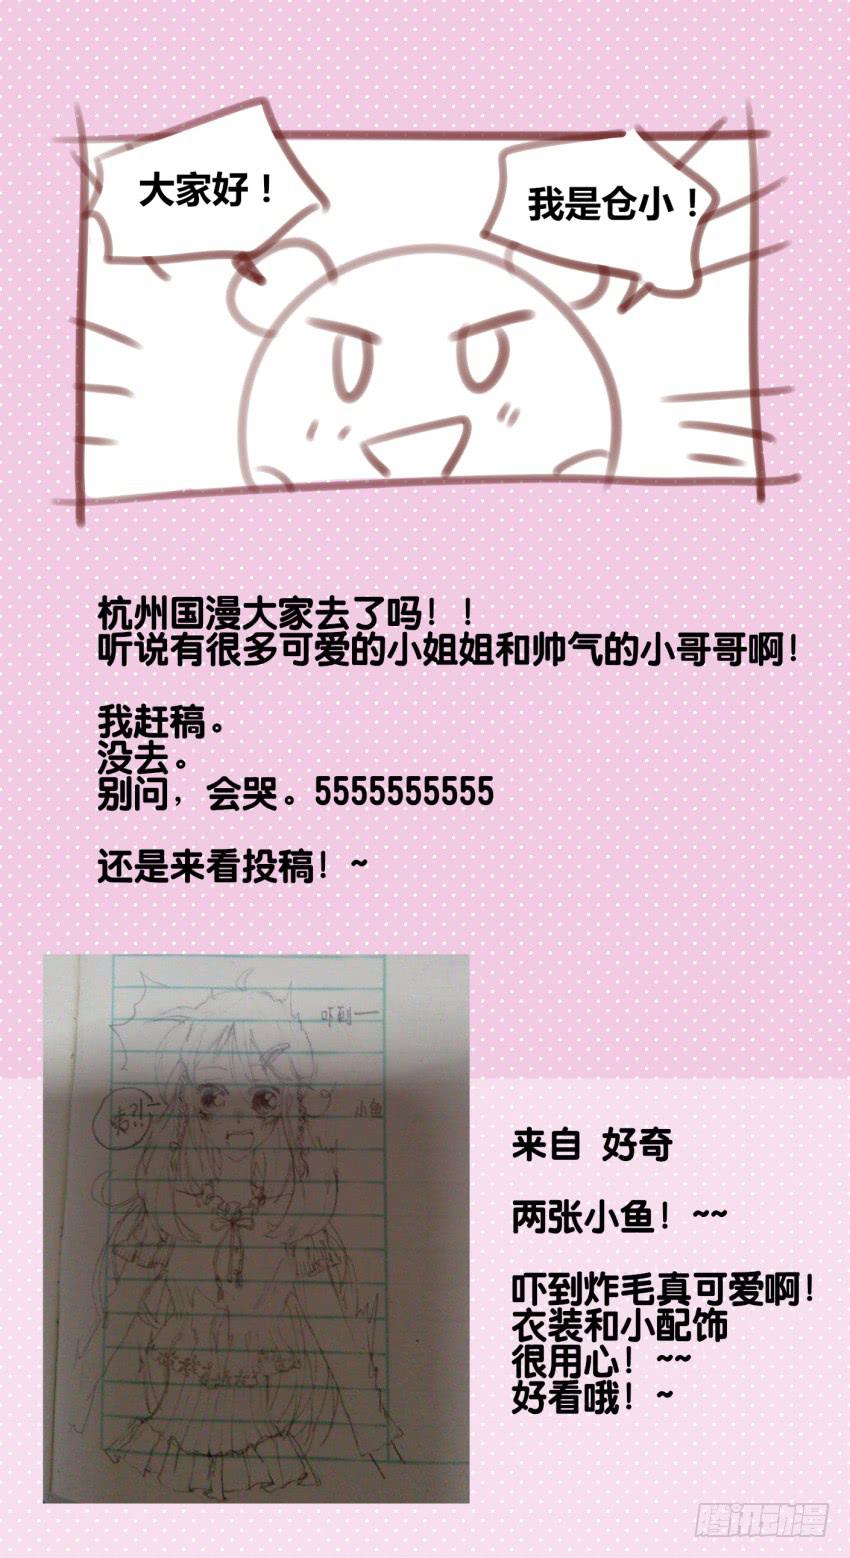 大家好！
我是仓小！
杭州国漫大家去了吗！！
听说有很多可爱的小姐姐和帅气的小哥哥啊！
我赶稿。
没去。
别问，会哭。5555555555
还是来看投稿！~
吓到一
小鱼
来自 好奇
两张小鱼！~~
吓到炸毛真可爱啊！
衣装和小配饰
很用心！~~
好看哦！~
腾讯动漫